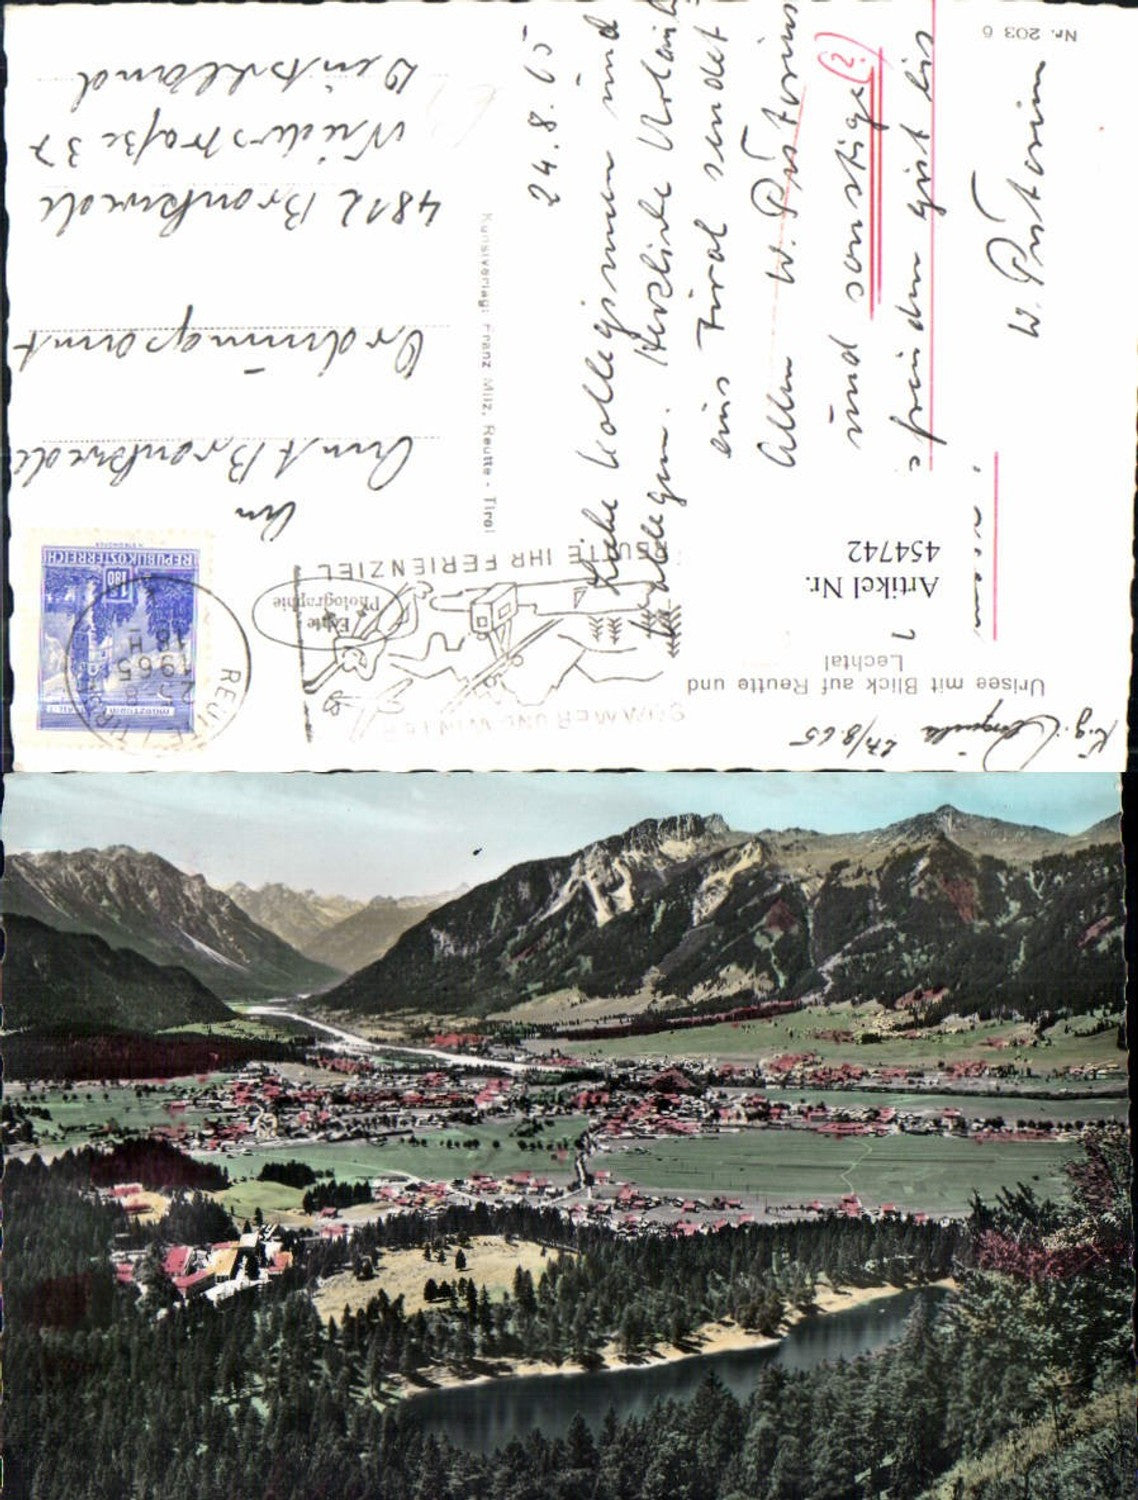 Urisee mit Blick auf Reutte und
Lechtal
Artikel Nr.
454742
Nr. 203 6
Kunstverlag: Franz Milz, Reutte - Tirol
Echte
Photographie
SOMMER UND WINTER
REUTTE IHR FERIENZIEL
REPUBLIK ÖSTERREICH
1.80
REUTTE / TIROL
1965
18 H
24.8.65
Liebe Kolleginnen und
Kollegen. Herzliche Urlaub
aus Tirol sendet
Allen W. Pistorius
und sonstige (?)
27/8.65
An
Amt Brackwede
Ordnungsamt
4812 Brackwede
37
Deutschland